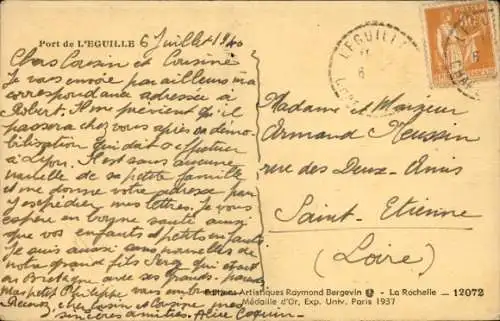 Port de L'EGUILLE 6 Juillet 1940
Chers Cousin et Cousine
Je vous envoie par ailleurs ma
correspondance adressée à
Robert. Il me prévient qu'il
passera chez vous après sa démo-
bilisation qui doit s'effectuer
à Lyon. Il est sans aucune
nouvelle de sa petite famille
et me donne votre adresse pour
y expédier mes lettres. Je vous
espère en bonne santé ainsi
que vos enfants et petits enfants
Je suis aussi sans nouvelles de
notre grand fils Serge qui était
en Bretagne avec ses grands-parents
Mon petit Philippe vous embrasse
Recevez, cher Cousin et Cousine, mes
sincères amitiés. Alice Coquin
L'EGUILLE
6
POSTES
Madame et Monsieur
Armand Heussin
rue des Deux-Amis
Saint-Etienne
(Loire)
Editions Artistiques Raymond Bergevin - La Rochelle - 12072
Médaille d'Or, Exp. Univ. Paris 1937